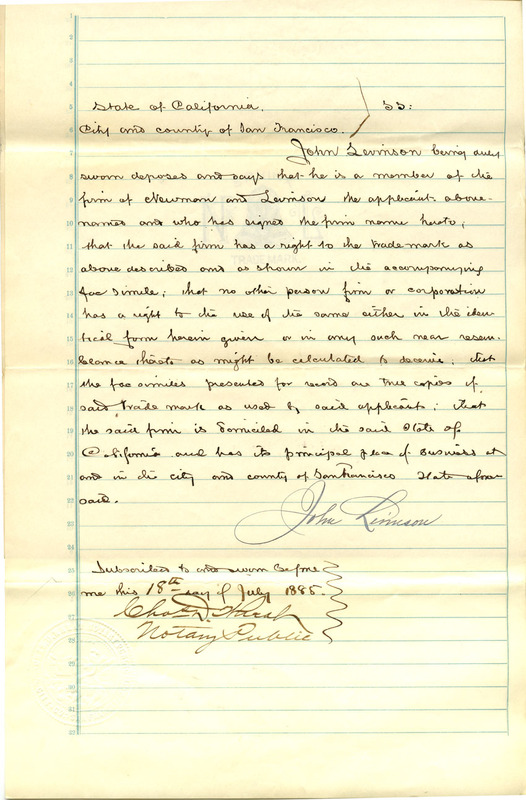 State of California. ) SS:
City and county of San Francisco. )
John Levinson being duly
sworn deposes and says that he is a member of the
firm of Newman and Levinson the applicants above-
named and who has signed the firm name hereto;
that the said firm has a right to the trade mark as
above described and as shown in the accompanying
fac simile; that no other person firm or corporation
has a right to the use of the same either in the iden-
tical form herein given or in any such near resem-
blance thereto as might be calculated to deceive; that
the fac similes presented for record are true copies of
said trade mark as used by said applicant; that
the said firm is domiciled in the said State of
California and has its principal place of business at
and in the city and county of San Francisco State afore-
said.
John Levinson
Subscribed to and sworn before
me this 18th day of July 1885.
Chas D.
Notary Public